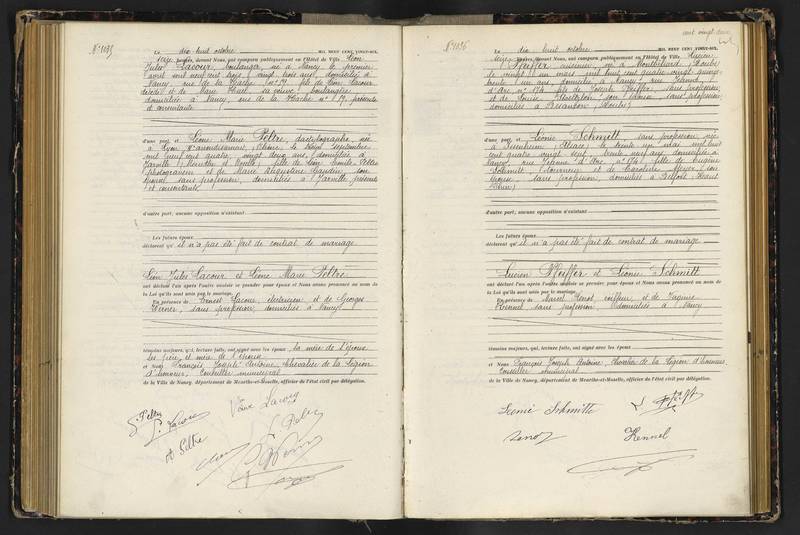 N° 1135
Le dix huit octobre MIL NEUF CENT VINGT-SIX,
heures, devant Nous, ont comparu publiquement en l'Hôtel de Ville Léon
Jules Lacour, boulanger, né à Nancy le premier
avril mil neuf cent trois, vingt trois ans, domicilié à
Nancy, rue de la Hache n° 19, fils de Léon Lacour
décédé et de Marie sa veuve, boulangère
domiciliée à Nancy, rue de la Hache n° 19, présente
et consentante
d'une part, et Léonie Marie Peltre, dactylographe, née
à Lyon, arrondissement, (Rhône) le septembre
mil neuf cent quatre, vingt deux ans, domiciliée à
Jarville (Meurthe et Moselle), fille de Léon Peltre
photograveur et de Marie Augustine son
épouse, sans profession, domiciliés à Jarville présents
et consentants
d'autre part, aucune opposition n'existant
Les futurs époux
déclarent qu'il n'a pas été fait de contrat de mariage
Léon Jules Lacour et Léonie Marie Peltre
ont déclaré l'un après l'autre vouloir se prendre pour époux et Nous avons prononcé au nom de
la Loi qu'ils sont unis par le mariage.
En présence de Ernest Lacour, électricien et de Georges
sans profession, domiciliés à Nancy
témoins majeurs, qui, lecture faite, ont signé avec les époux, la mère de l'époux
les père et mère de l'épouse
et Nous François Joseph Antoine, Chevalier de la Légion
d'honneur, Conseiller municipal
de la Ville de Nancy, département de Meurthe-et-Moselle, officier de l'état civil par délégation.
L Peltre
L. Lacour
Vve Lacour
A Peltre
cent vingt deux
N° 1136
Le dix huit octobre MIL NEUF CENT VINGT-SIX,
heures, devant Nous, ont comparu publiquement en l'Hôtel de Ville Lucien
Pfeiffer, cuisinier, né à Montbéliard (Doubs)
le vingt un mars mil huit cent quatre vingt quinze
trente un ans, domicilié à Nancy, rue Jeanne
d'Arc n° 174, fils de Joseph Pfeiffer, sans profession
et de Louise son épouse, sans profession
domiciliés à Besançon (Doubs)
d'une part, et Léonie Schmitt, sans profession, née
à Issenheim (Alsace) le trente un mai mil huit
cent quatre vingt neuf, trente sept ans, domiciliée à
Nancy, rue Jeanne d'Arc n° 174, fille de Eugène
Schmitt, tourneur et de Caroline Meyer son
épouse, sans profession, domiciliés à Belfort (Haut
Rhin)
d'autre part, aucune opposition n'existant
Les futurs époux
déclarent qu'il n'a pas été fait de contrat de mariage
Lucien Pfeiffer et Léonie Schmitt
ont déclaré l'un après l'autre vouloir se prendre pour époux et Nous avons prononcé au nom de
la Loi qu'ils sont unis par le mariage.
En présence de Marcel coiffeur et de
Hennel sans profession domiciliés à Nancy
témoins majeurs, qui, lecture faite, ont signé avec les époux
et Nous François Joseph Antoine, Chevalier de la Légion d'honneur,
Conseiller municipal
de la Ville de Nancy, département de Meurthe-et-Moselle, officier de l'état civil par délégation.
Léonie Schmitt
Hennel